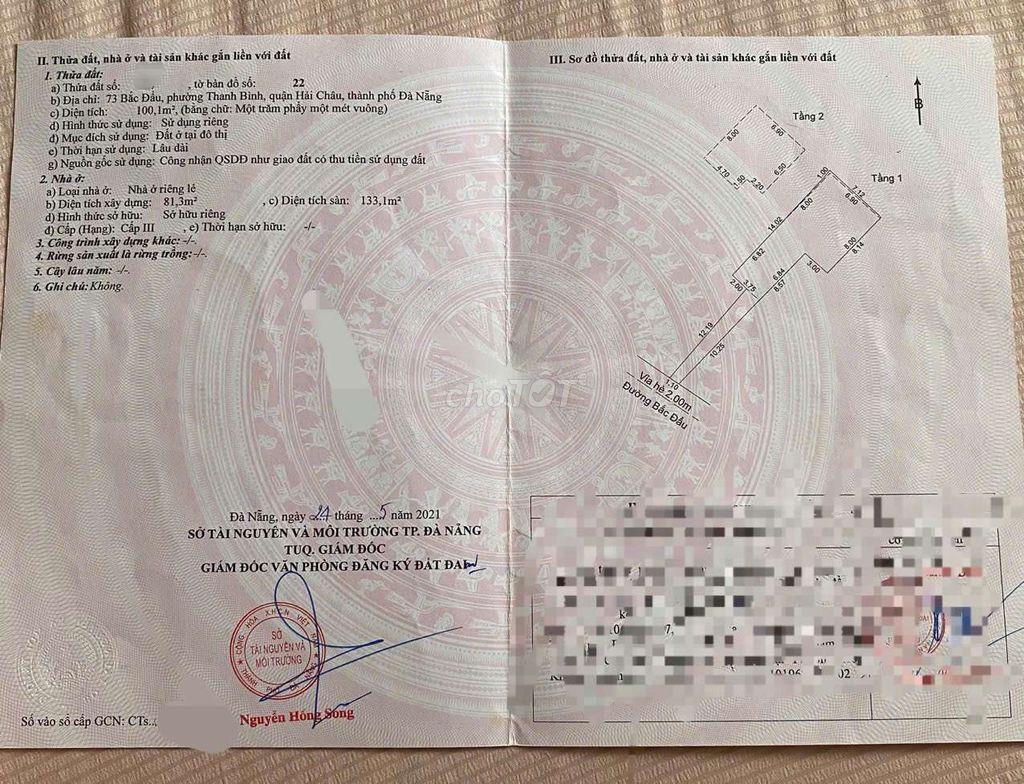 II. Thửa đất, nhà ở và tài sản khác gắn liền với đất
1. Thửa đất:
a) Thửa đất số: , tờ bản đồ số: 22
b) Địa chỉ: 73 Bắc Đẩu, phường Thanh Bình, quận Hải Châu, thành phố Đà Nẵng
c) Diện tích: 100,1m², (bằng chữ: Một trăm phẩy một mét vuông)
d) Hình thức sử dụng: Sử dụng riêng
đ) Mục đích sử dụng: Đất ở tại đô thị
e) Thời hạn sử dụng: Lâu dài
g) Nguồn gốc sử dụng: Công nhận QSDĐ như giao đất có thu tiền sử dụng đất
2. Nhà ở:
a) Loại nhà ở: Nhà ở riêng lẻ
b) Diện tích xây dựng: 81,3m² , c) Diện tích sàn: 133,1m²
d) Hình thức sở hữu: Sở hữu riêng
đ) Cấp (Hạng): Cấp III , e) Thời hạn sở hữu: -/-
3. Công trình xây dựng khác: -/-.
4. Rừng sản xuất là rừng trồng: -/-.
5. Cây lâu năm: -/-.
6. Ghi chú: Không.
Đà Nẵng, ngày 24 tháng ...5 năm 2021
SỞ TÀI NGUYÊN VÀ MÔI TRƯỜNG TP. ĐÀ NẴNG
TUQ. GIÁM ĐỐC
GIÁM ĐỐC VĂN PHÒNG ĐĂNG KÝ ĐẤT ĐAI
CỘNG HÒA X.H.C.N VIỆT
SỞ
TÀI NGUYÊN VÀ
MÔI TRƯỜNG
Nguyễn Hồng Song
Số vào sổ cấp GCN: CTs..
III. Sơ đồ thửa đất, nhà ở và tài sản khác gắn liền với đất
B
Tầng 2
8.00
6.90
4.70
.50
2.20
6.50
Tầng 1
1.00
7.12
6.90
8.00
14.02
6.82
8.00
8.14
3.00
6.84
8.57
3.75
2.00
12.19
10.25
1.10
Vỉa hè 2.00m
Đường Bắc Đẩu
chợTỐT